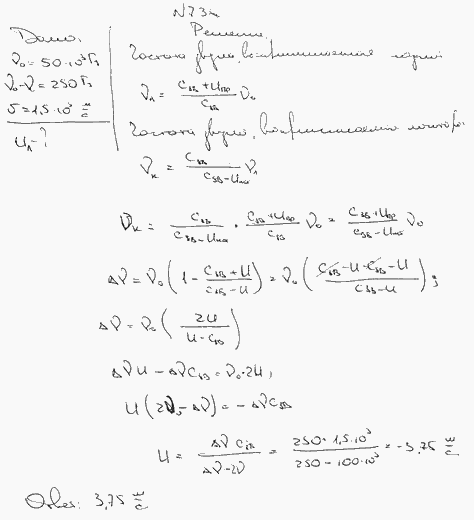 N73к
Дано:
ν₀ = 50·10³ Гц
ν₀-ν = 250 Гц
υ = 1,5·10³ м/с
u₁ - ?
Решение
Частота звука, воспринимаемая лодкой
ν₁ = (C_зв + u_пр)/C_зв ν₀
Частота звука, воспринимаемого
ν_к = C_зв/(C_зв - u_ис) ν₁
ν_к = C_зв/(C_зв - u_ис) · (C_зв + u_пр)/C_зв ν₀ = (C_зв + u_пр)/(C_зв - u_ис) ν₀
Δν = ν₀ (1 - (C_зв + u)/(C_зв - u)) = ν₀ ((C_зв - u - C_зв - u)/(C_зв - u));
Δν = ν₀ (2u/(u - C_зв))
Δν u - Δν C_зв = ν₀·2u,
u(2ν₀ - Δν) = -Δν C_зв
u = Δν C_зв/(Δν - 2ν) = 250·1,5·10³/(250 - 100·10³) = -3,75 м/с
Ответ: 3,75 м/с